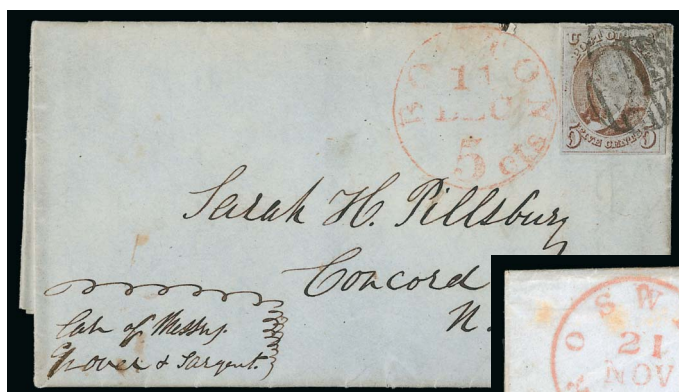 BOSTON
11
DEC
5 cts
U
POST OFFICE
FIVE CENTS
5 5
Sarah H. Pillsbury
Concord
N.
Care of Messrs.
Grover & Sargent.
OSW
21
NOV